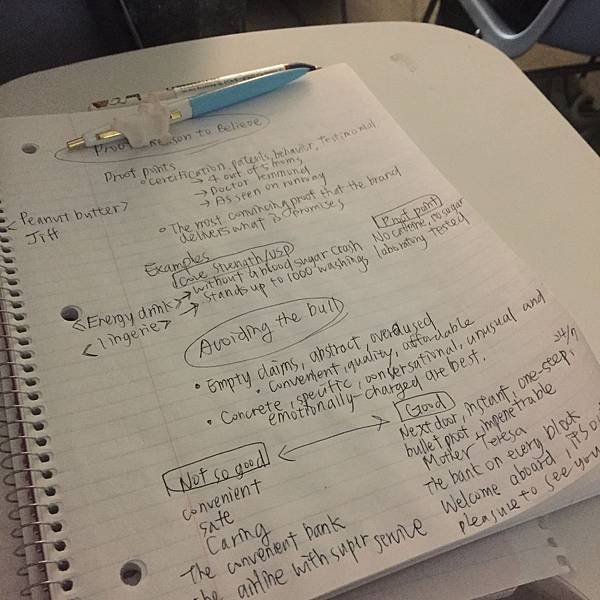 Proof Reason to Believe
Proof points
• certification, patents, behavior, testimonial
→ 4 out of 5 moms
→ Doctor remmond
→ As seen on running
<Peanut butter>
Jiff
• The most convincing proof that the brand
delivers what is promises
Examples
Core strength/USP
Proof point
<Energy drink> → without a blood sugar crash
No caffeine, no sugar
<lingerie> → Stands up to 1000 washings
laboratory tested
Avoiding the bull
• Empty claims, abstract, overused
• convenient, quality, affordable
• Concrete, specific, conversational, unusual and
emotionally-charged are best.
Not so good
convenient
safe
Caring
The convenient bank
the airline with super service
Good
Next door, instant, one-seep, 24/7
bullet proof, impenetrable
Mother Teresa
The bank on every block
Welcome aboard, it's our
pleasure to see you